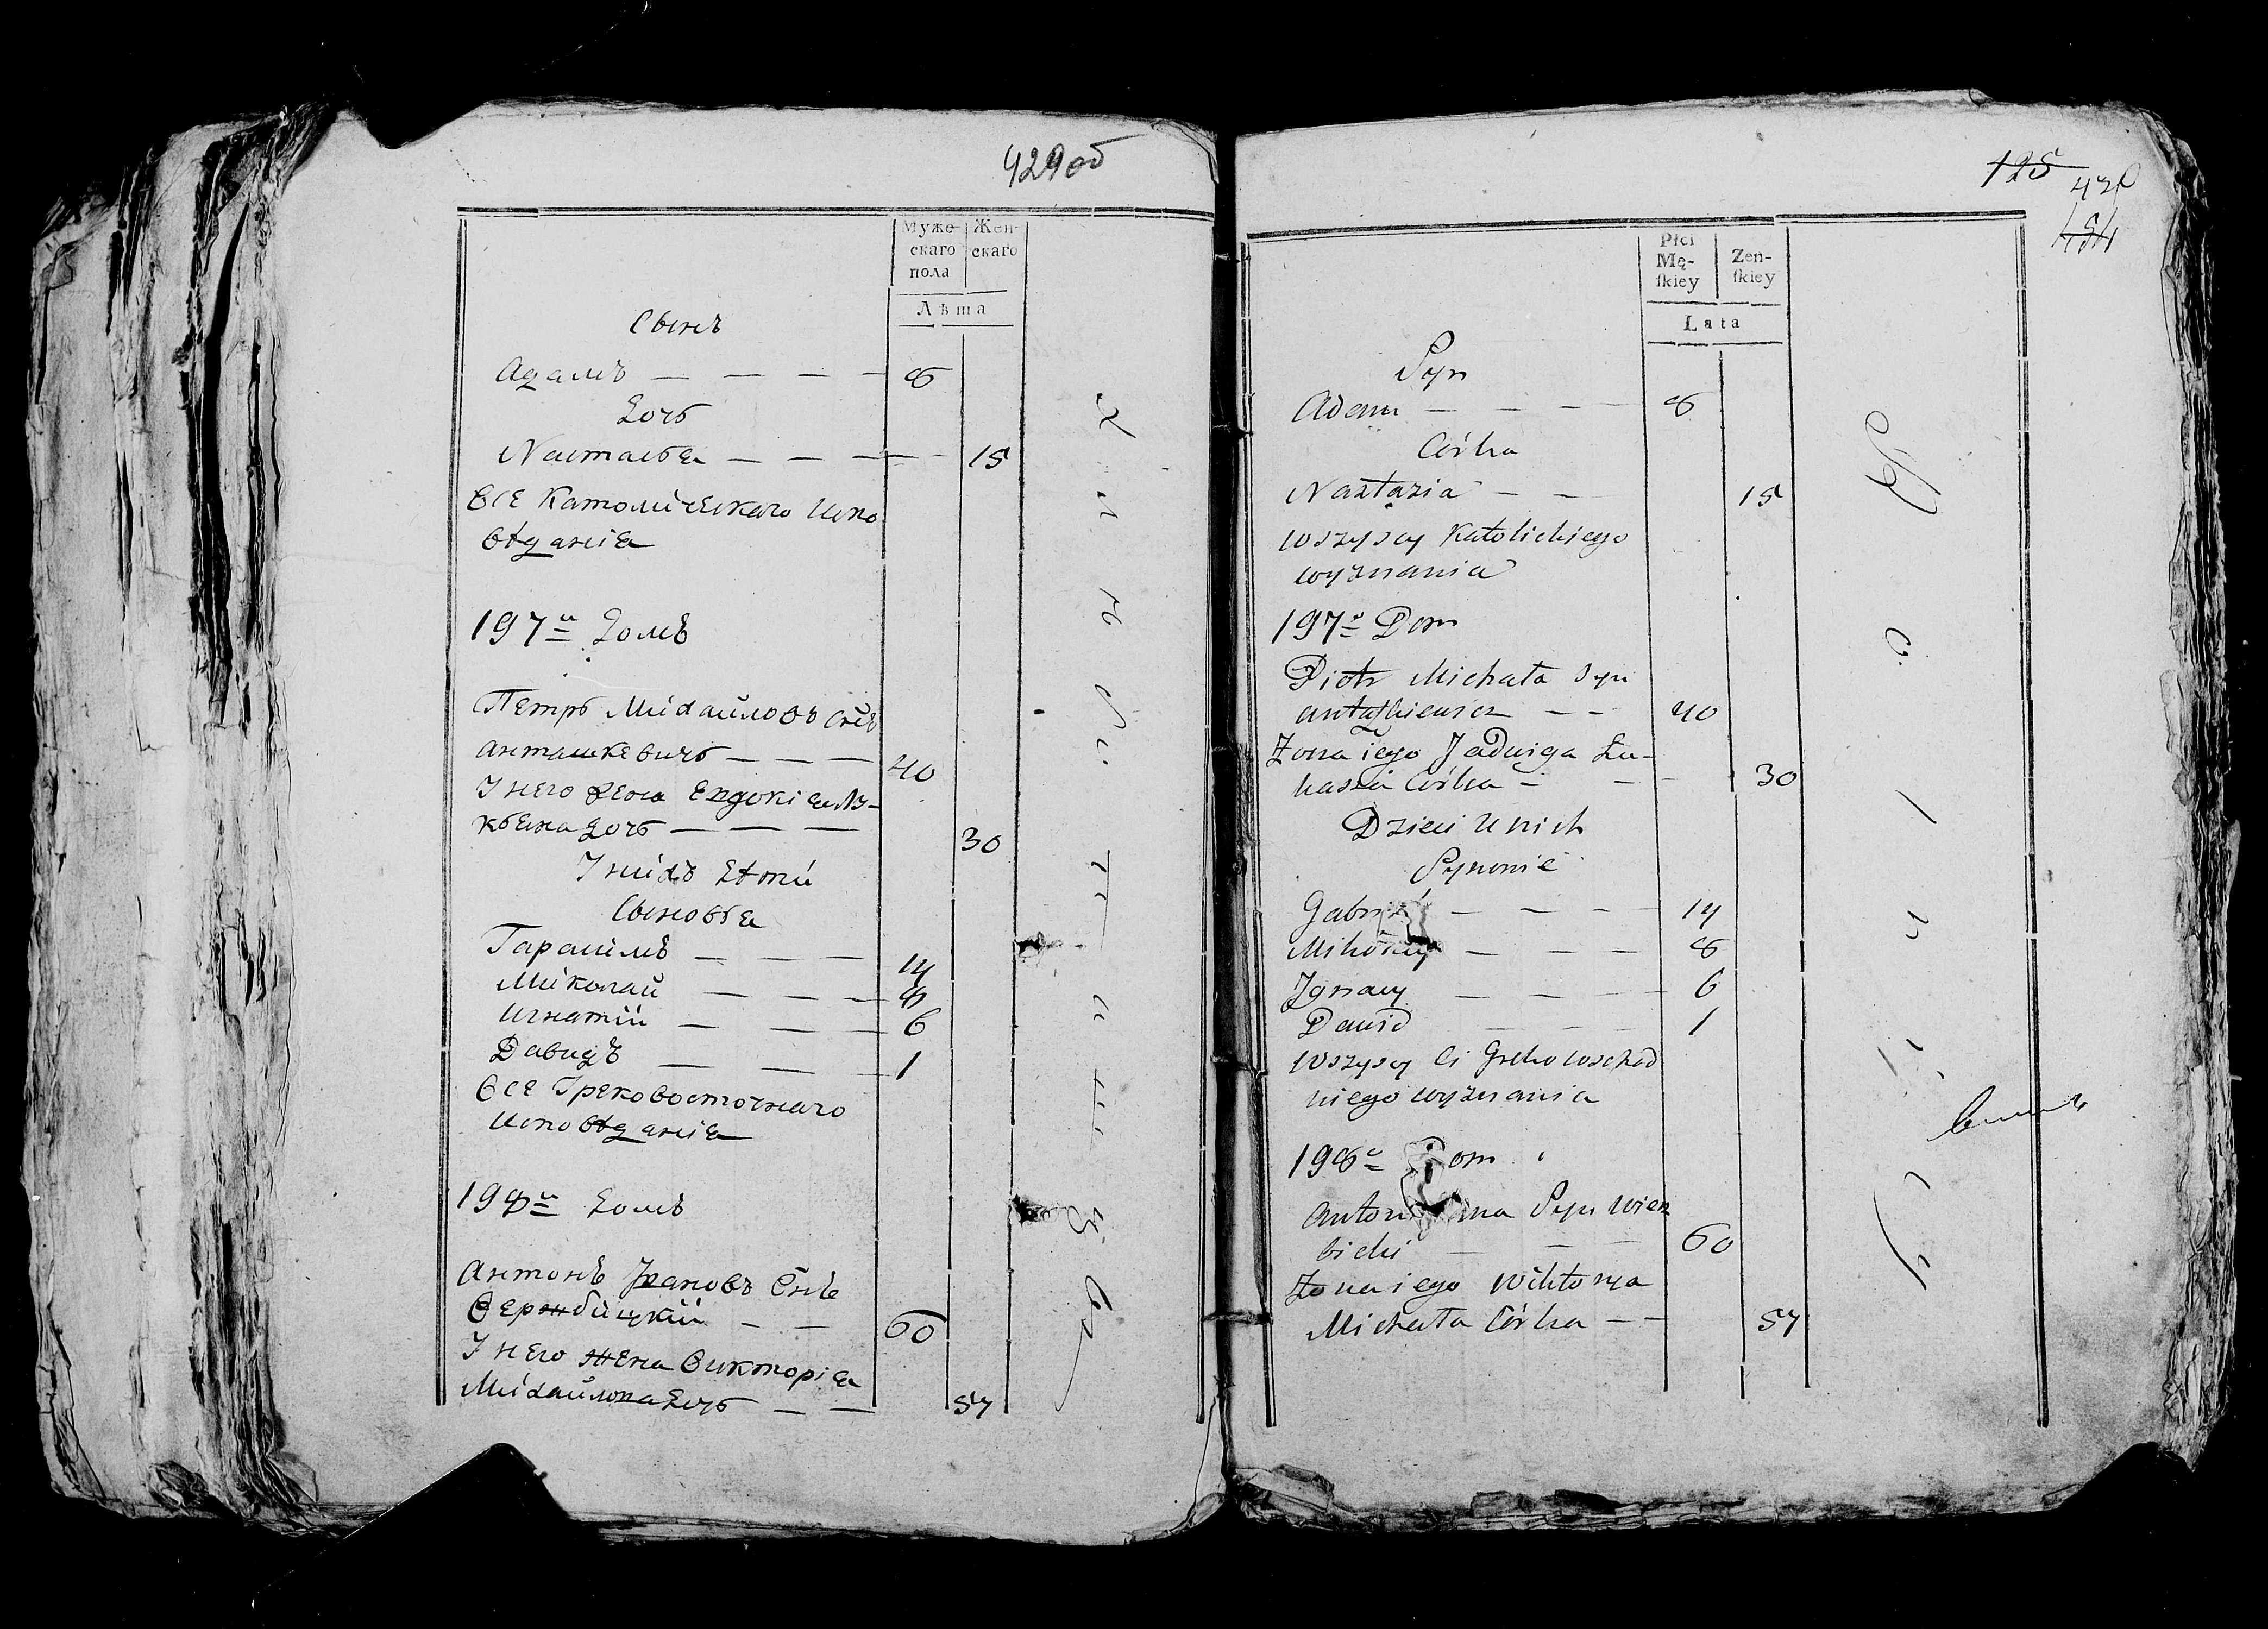 429об
Муже-
скаго
пола
Жен-
скаго
Лѣта
Сынъ
Адамъ — — — — 8
Дочь
Настасья — — — — 15
Все Католическаго испо
вѣданія
197й Домъ
Петръ Михайловъ Снъ
Анташкевичъ — — — 40
У него жена Евдокія Лу-
кьяна дочь — — — 30
У нихъ Дѣти
Сыновья
Гараимъ — — — 14
Миколай — — — 8
Игнатій — — — 6
Давидъ — — — 1
Все Грековосточнаго
исповѣданія
198й Домъ
Антонъ Ивановъ Снъ
Вержбицкій — — 60
У него жена Викторія
Михайлова Дочь — — 57
125
430
Płci
Mę-
ſkiey
Zen-
ſkiey
Lata
Syn
Adam — — — 8
Córka
Nastazia — — 15
wszyscy Katolickiego
wyznania
197y Dom
Piotr Michała Syn
Antaszkiewicz — — 40
Żona iego Jadwiga Łu-
kasza Córka — — 30
Dzieci u nich
Synowie
— — — — 14
Mikołay — — — 8
Ignacy — — — 6
Dawid — — — 1
wszyscy Ci Greko wschod
niego wyznania
198y Dom
Antoni Syn Wierz
bicki — — — 60
Żona iego Wiktorya
Michała Córka — — 57